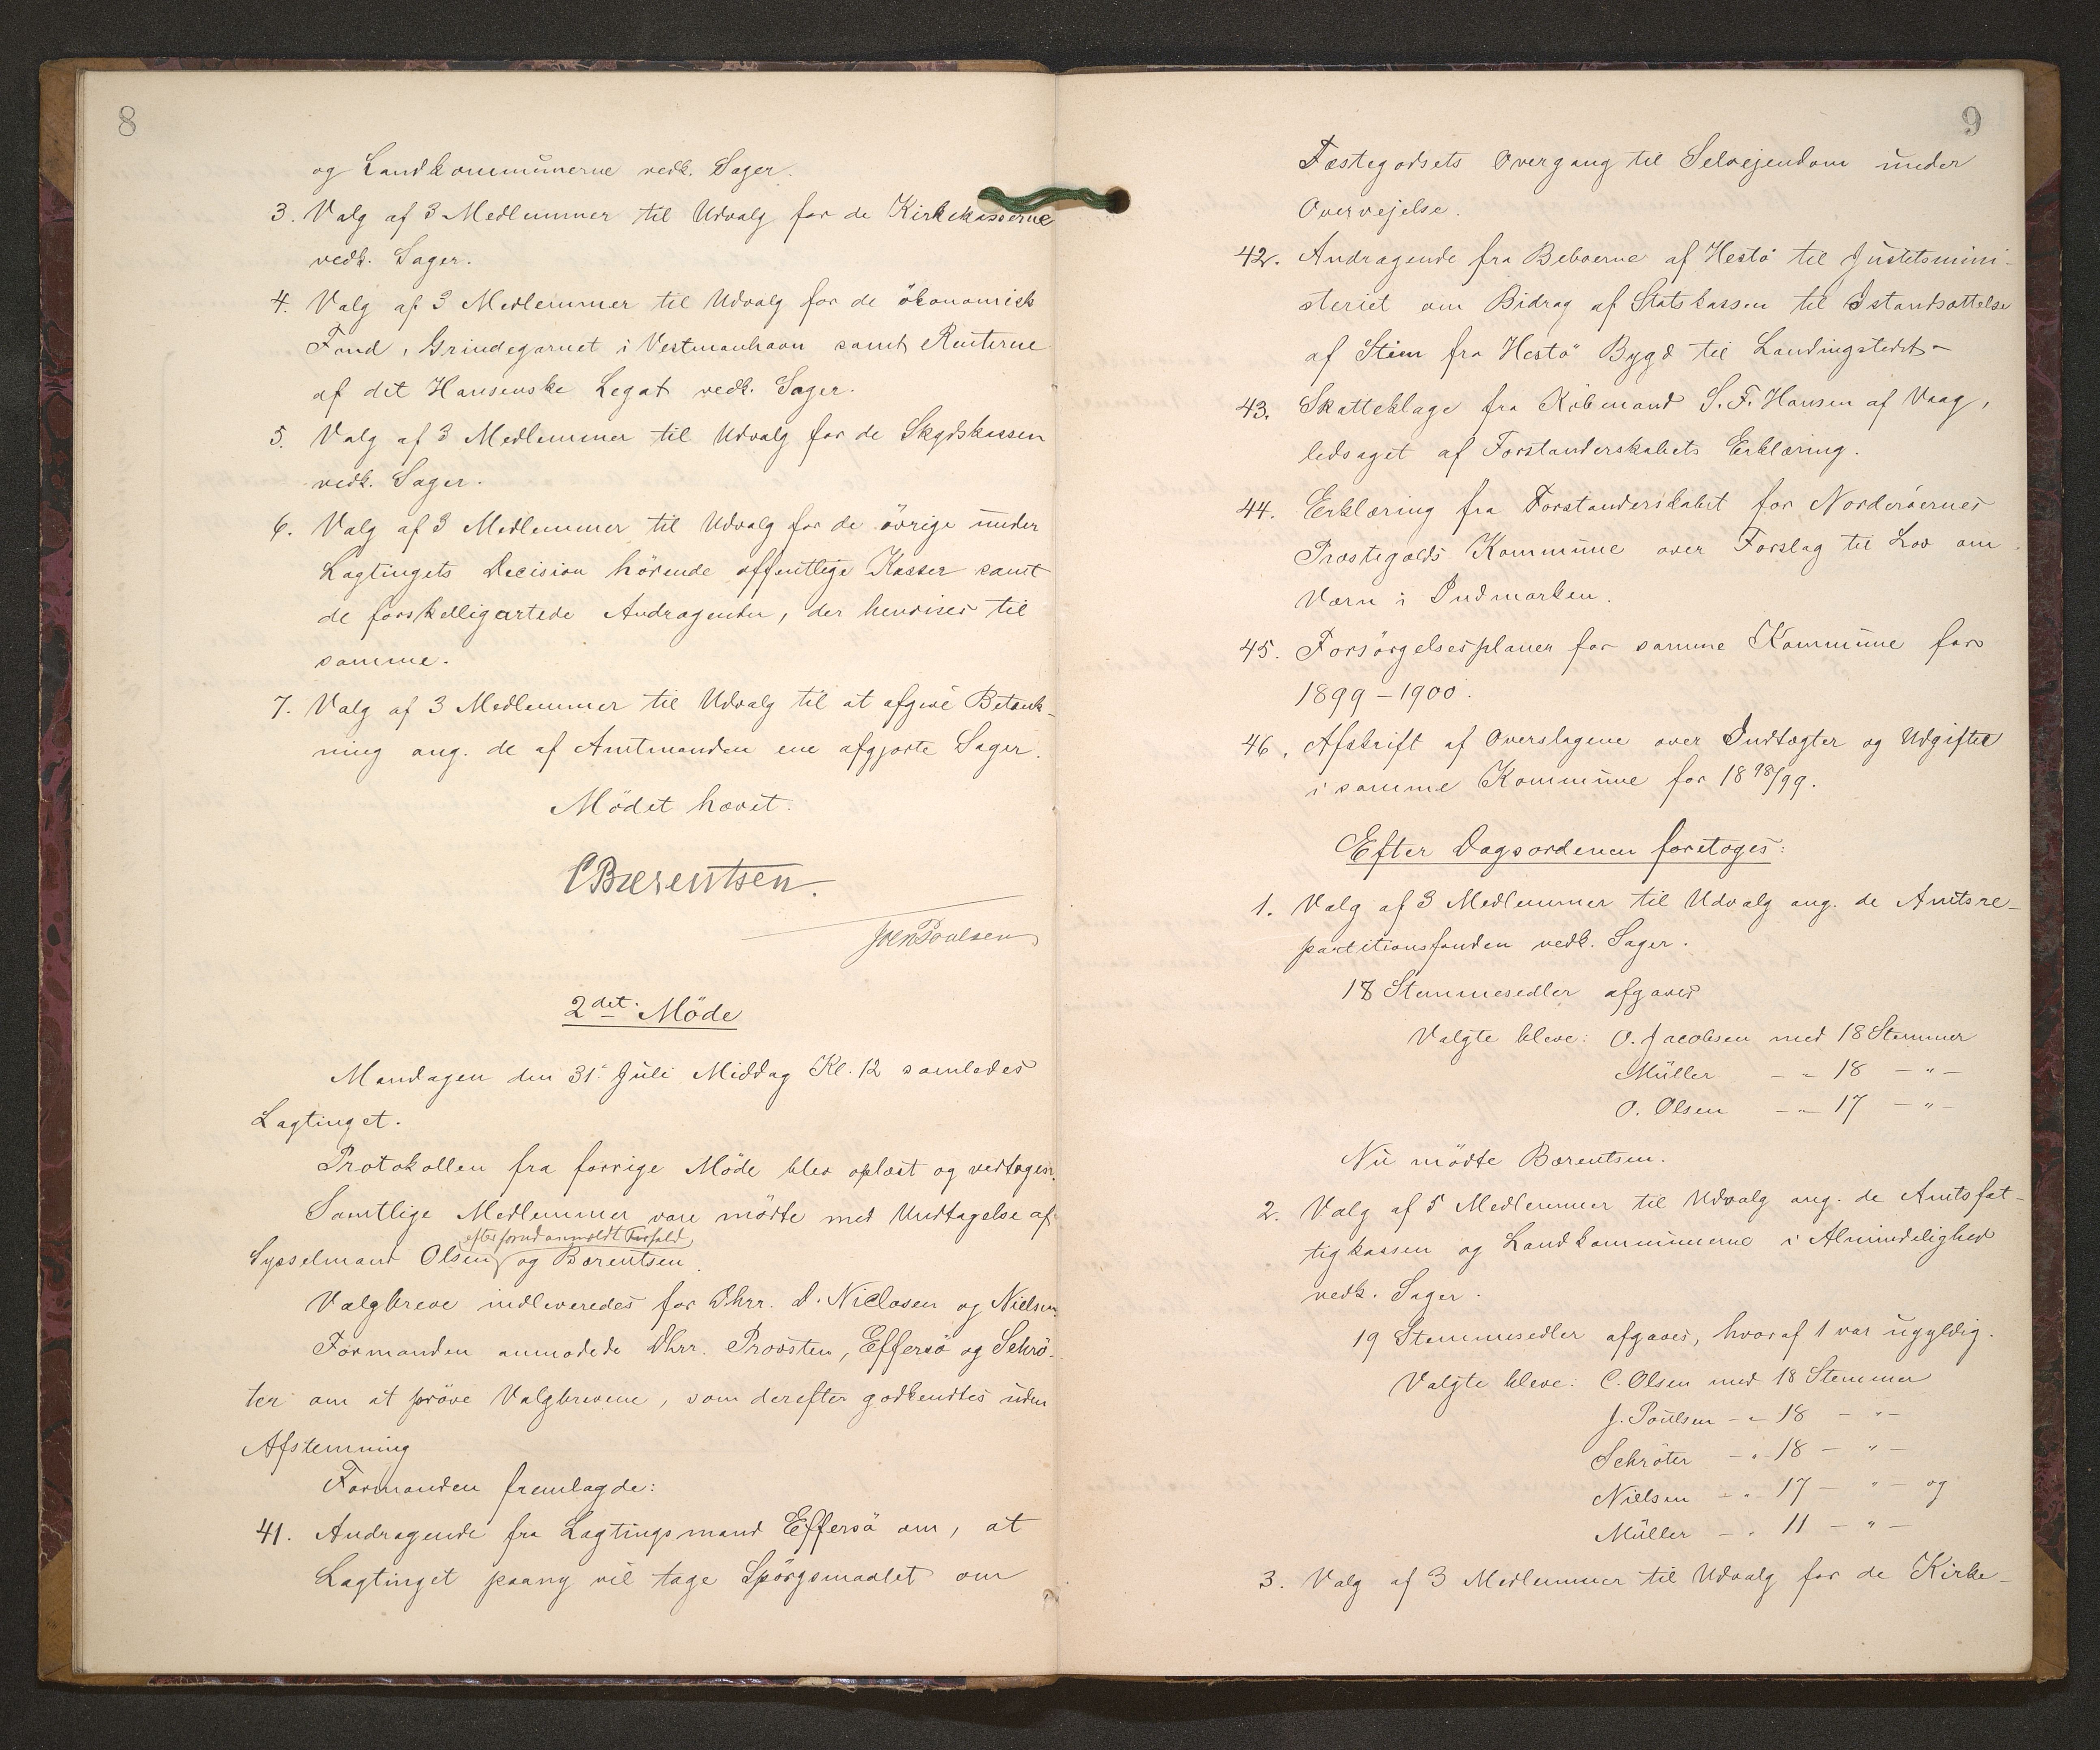 8
og Landkommunerne vedk. Sager.
3. Valg af 3 Medlemmer til Udvalg for de Kirkekasserne
vedk. Sager.
4. Valg af 3 Medlemmer til Udvalg for de ökonomisk
Fond, Grindegarnet i Vestmanhavn samt Renterne
af det Hansenske Legat vedk. Sager.
5. Valg af 3 Medlemmer til Udvalg for de Skydskassen
vedk. Sager.
6. Valg af 3 Medlemmer til Udvalg for de övrige under
Lagtingets Decision hörende offentlige Kasser samt
de forskelligartede Andragender, der henvises til
samme.
7. Valg af 3 Medlemmer til Udvalg til at afgive Betænk-
ning ang. de af Amtmanden ene afgjorte Sager.
Mödet hævet.
CBærentsen.
JoenPoulsen
2det Möde
Mandagen den 31. Juli Middag Kl. 12 samledes
Lagtinget.
Protokollen fra forrige Möde blev oplæst og vedtagen.
Samtlige Medlemmer vare mödte med Undtagelse af
efter forud anmeldt Forfald
Sysselmand Olsen og Bærentsen.
Valgbreve indleveredes for Dhrr. D. Niclasen og Nielsen.
Formanden anmodede Dhrr. Provsten, Effersö og Schrö-
ter om at pröve Valgbrevene, som derefter godkendtes uden
Afstemning
Formanden fremlagde:
41. Andragende fra Lagtingsmand Effersö om, at
Lagtinget paany vil tage Spörgsmaalet om
9
Fæstegodsets Overgang til Selvejendom under
Overvejelse.
42. Andragende fra Beboerne af Hestö til Justitsmini-
steriet om Bidrag af Statskassen til Istandsættelse
af Stien fra Hestö Bygd til Landingstedet-
43. Skatteklage fra Köbmand S. F. Hansen af Vaag,
ledsaget af Forstanderskabets Erklæring.
44. Erklæring fra Forstanderskabet for Norderöernes
Præstegælds Kommune over Forslag til Lov om
Værn i Indmarken.
45. Forsörgelsesplaner for samme Kommune for
1899-1900.
46. Afskrift af Overslagene over Indtægter og Udgifter
i samme Kommune for 1898/99.
Efter Dagsordenen foretoges:
1. Valg af 3 Medlemmer til Udvalg ang. de Amtsre-
partitionsfonden vedk. Sager.
18 Stemmesedler afgaves
Valgte bleve: O. Jacobsen med 18 Stemmer
Müller - " - 18 - " -
O. Olsen - " - 17 - " -
Nu mödte Bærentsen.
2. Valg af 5 Medlemmer til Udvalg ang. de Amtsfat-
tigkassen og Landkommunerne i Almindelighed
vedk. Sager.
19 Stemmesedler afgaves, hvoraf 1 var ugyldig.
Valgte bleve: C. Olsen med 18 Stemmer
J. Poulsen - " - 18 - " -
Schröter - " - 18 - " -
Nielsen - " - 17 - " - og
Müller - " - 11 - " -
3. Valg af 3 Medlemmer til Udvalg for de Kirke-